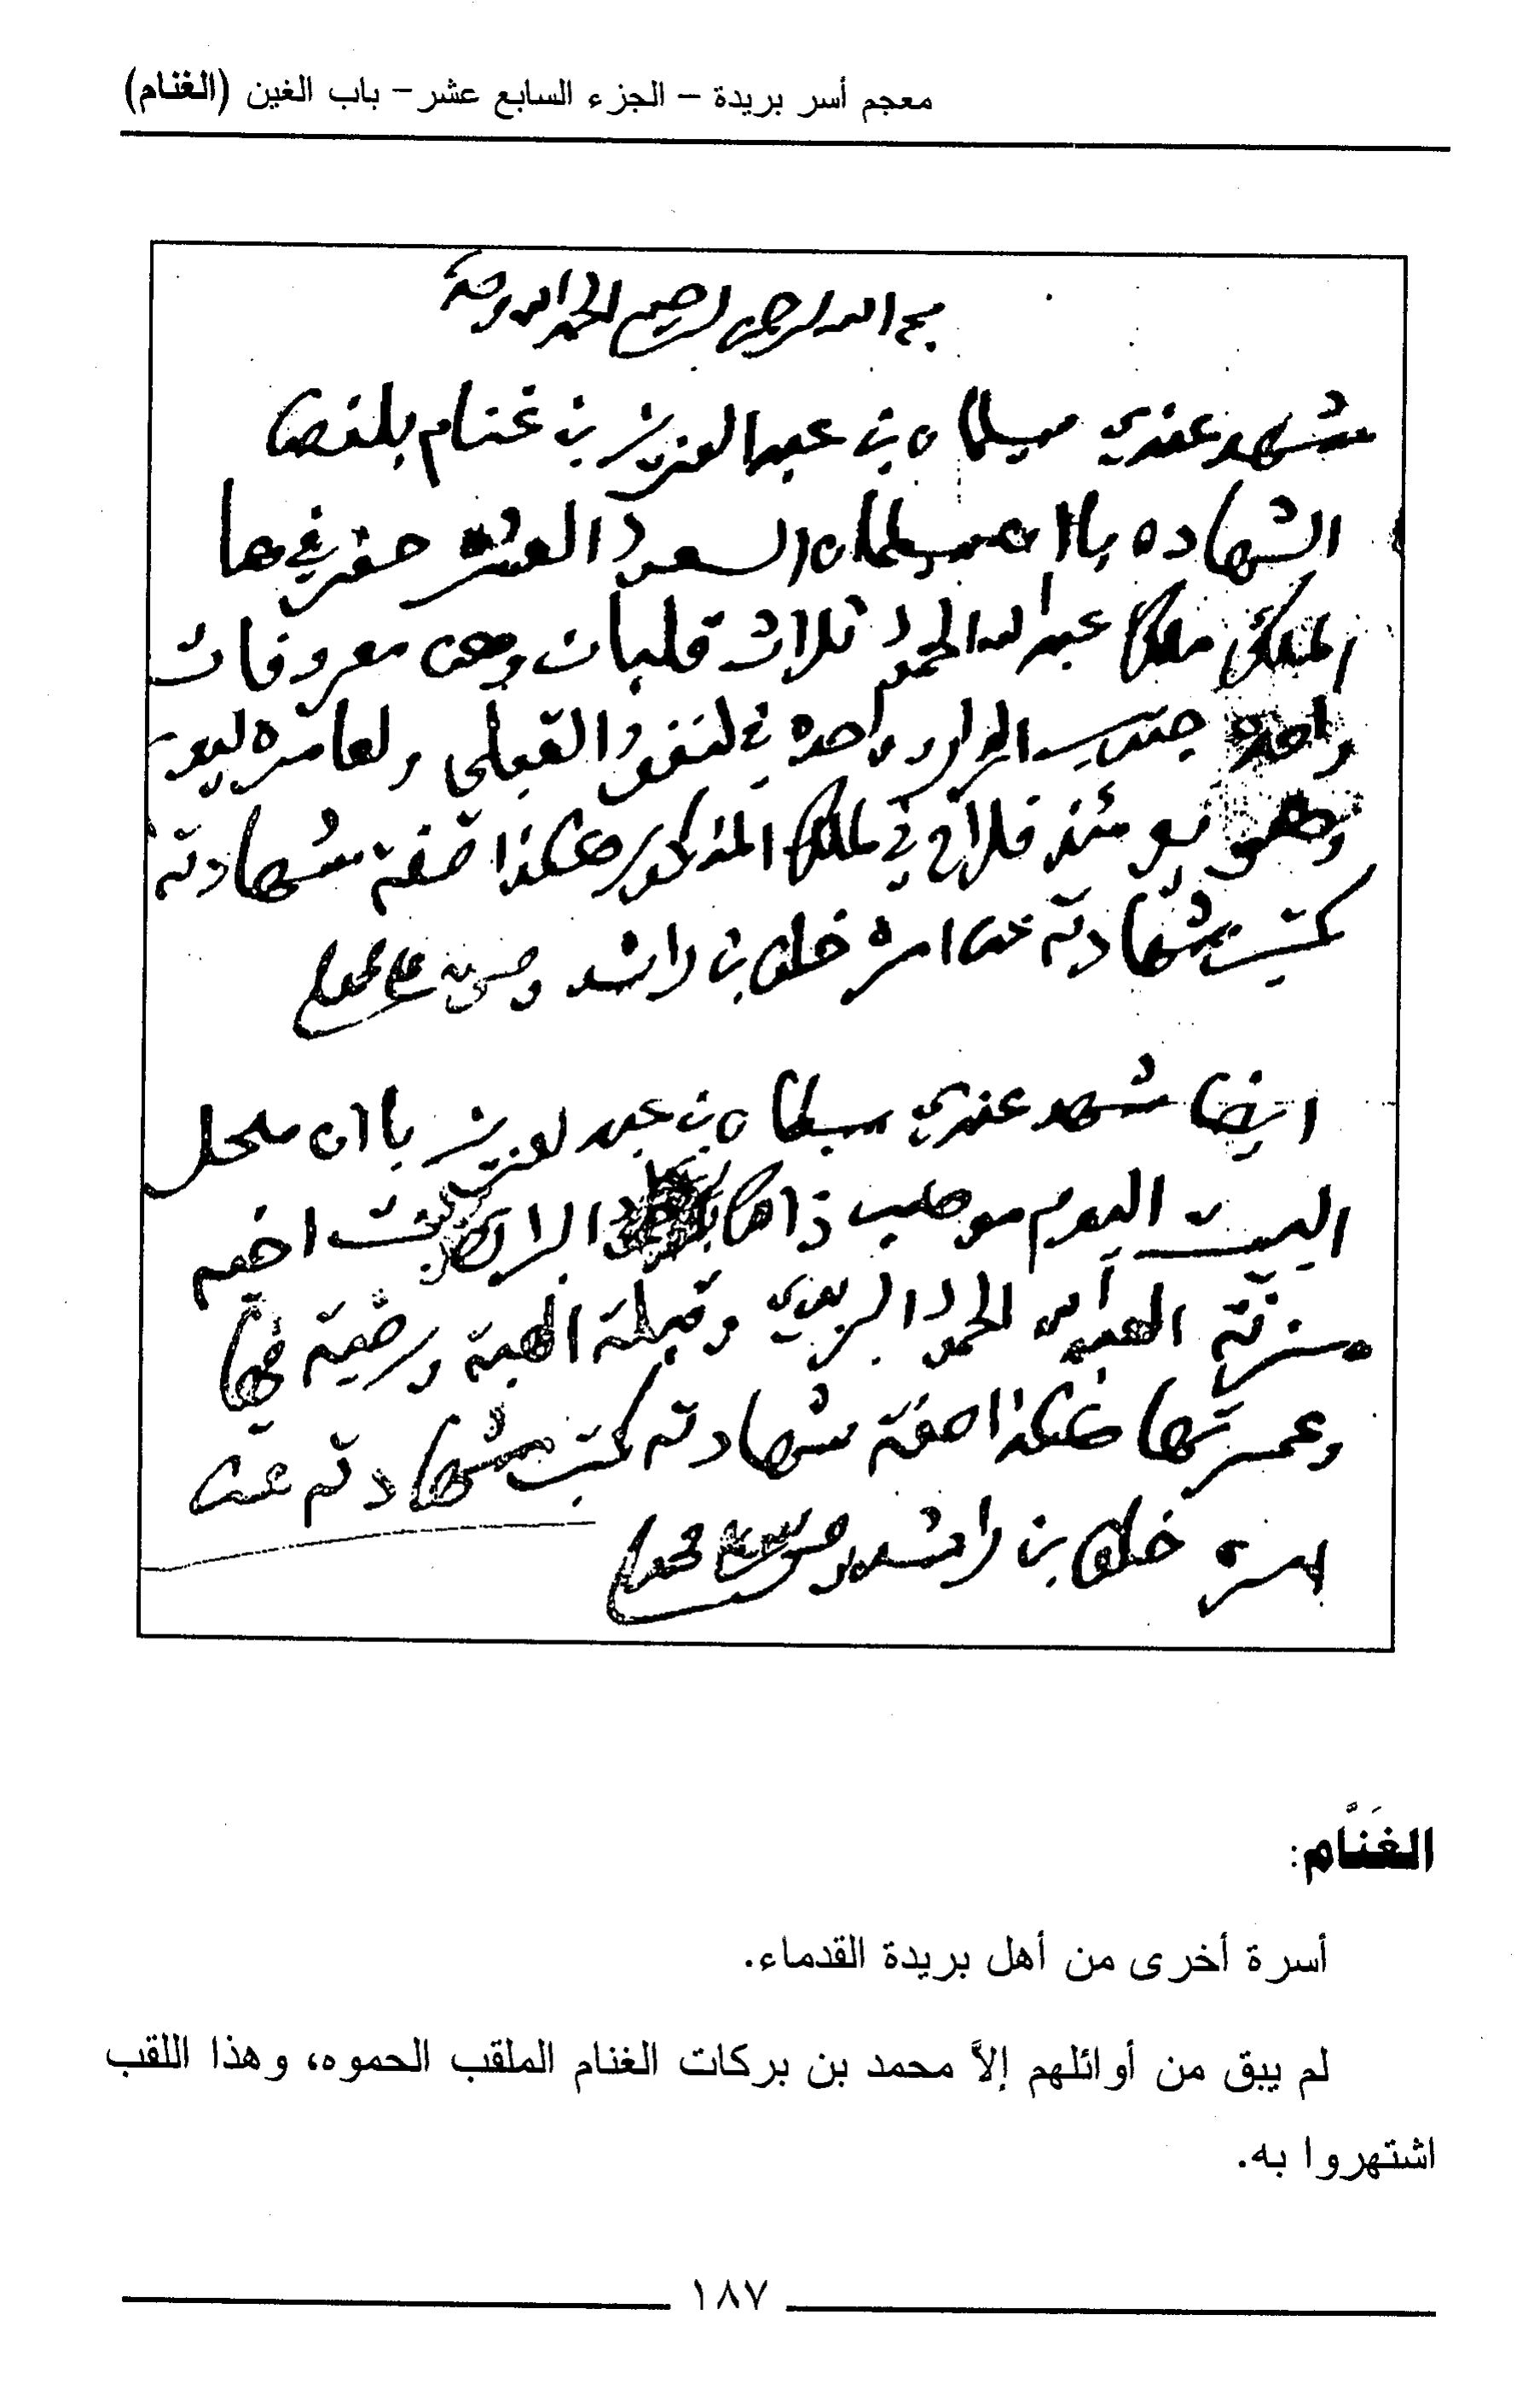 معجم أسر بريدة – الجزء السابع عشر – باب الغين (الغنام)
بسم الله الرحمن الرحيم الحمد لله وحده
شهد عندي سليمان بن عبدالعزيز بن غنام بلفض
الشهاده باان سليمان السعود العشر حفر في ها
الملك ملك عبدالله الحمود ثلاث قلبان وهن معروفات
واحده واحده في لنفود القبلي ولعامره ليو
وهو يومئذ فلاح في ملك المذكور هكذا صفة شهادته
كتب شهادته عن امره خلف بن راشد وصلى الله على محمد
ايضا شهد عندي سليمان بن عبد لعزيز باان محل
البيت اليوم
العبدالله الحمود البريدي وقبلة الهبة ورضية فيها
وعمرتها هكذا صفة شهادته كتب شهادته عن
امره خلف بن راشد وصلى الله على محمد
الغَنَّام:
أسرة أخرى من أهل بريدة القدماء.
لم يبق من أوائلهم إلاَّ محمد بن بركات الغنام الملقب الحموه، وهذا اللقب
اشتهروا به.
١٨٧